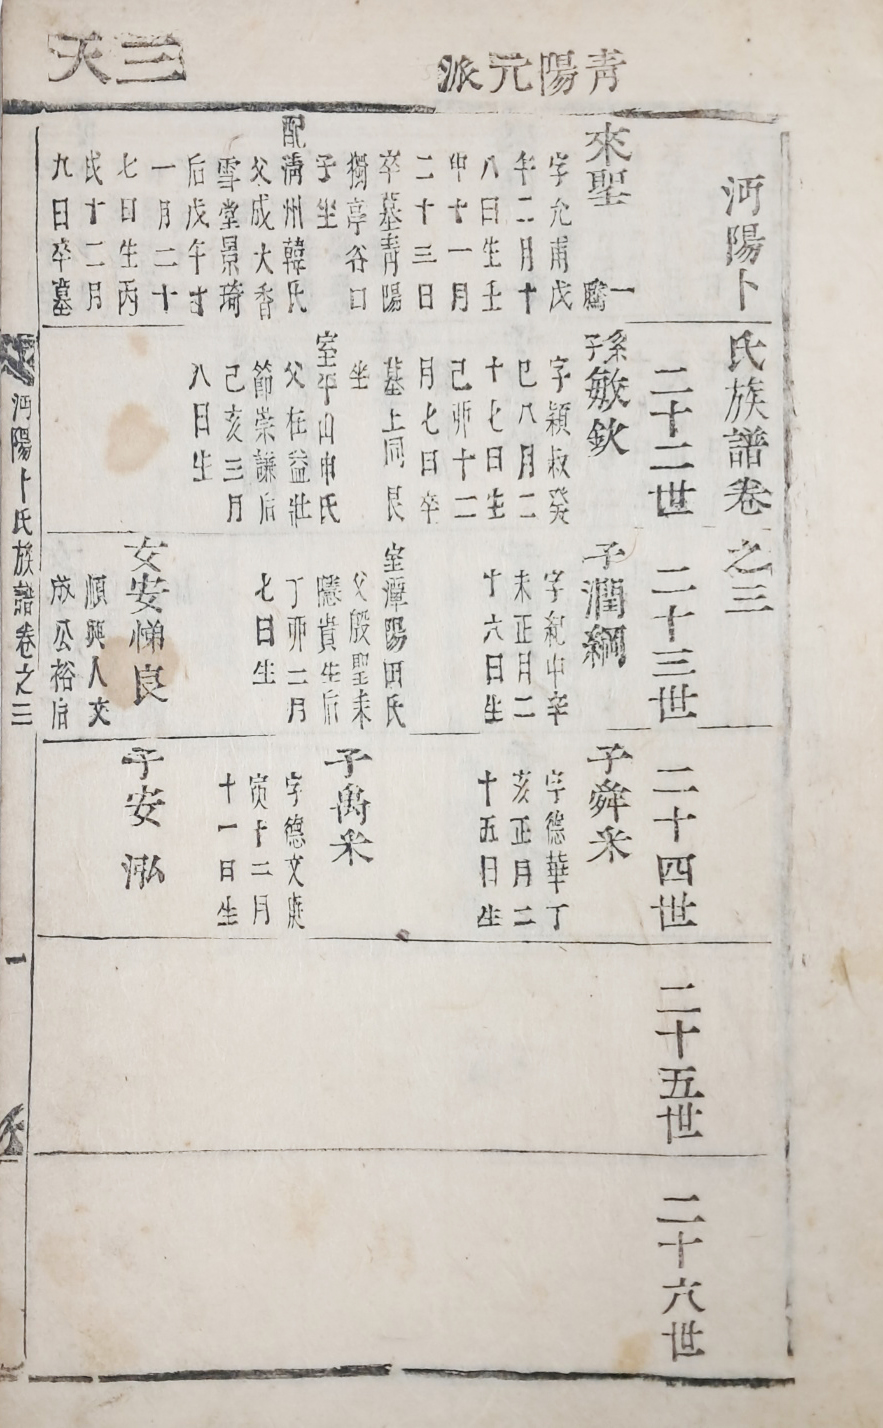 青陽元派
天三
沔陽卜氏族譜卷之三
二十二世
二十三世
二十四世
二十五世
二十六世
來聖
一鵬
字允甫戊
午二月十
八日生壬
申十一月
二十三日
卒墓靑陽
獨亭谷口
子坐
配淸州韓氏
父成大香
雪堂景琦
后戊午
一月二十
七日生丙
戌十二月
九日卒墓
系子敏欽
字穎叔癸
巳八月二
十七日生
己卯十二
月七日卒
墓上同艮
坐
室平山申氏
父在益壯
節崇謙后
己亥三月
八日生
子潤綱
字紀中辛
未正月二
十六日生
室潭陽田氏
父殷聖耒
隱貴生后
丁卯二月
七日生
女安悌良
順興人文
成公裕后
子舜釆
字德華丁
亥正月二
十五日生
子禹釆
字德文庚
寅十二月
十一日生
子安泓
沔陽卜氏族譜卷之三
一